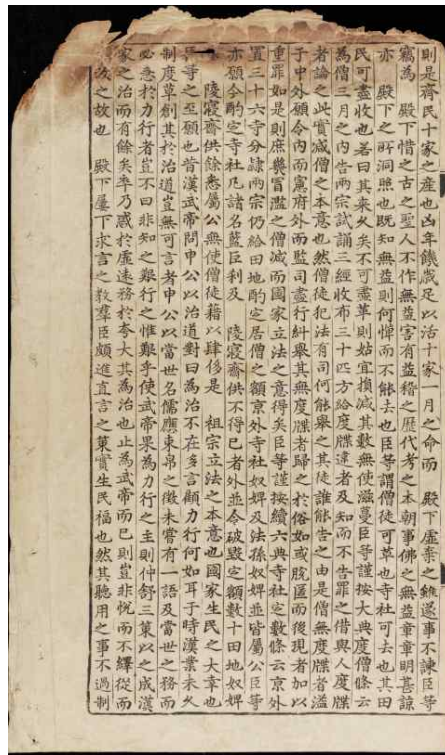 則是齊民十家之産也凶年饑歲足以活十家一月之命而　殿下虛棄之雖遂事不諫臣等
竊爲　殿下惜之古之聖人不作無益害有益稽之歷代考之本朝事佛之無益章章明甚諒
亦　殿下之所洞照也旣知無益則何憚而不能去也臣等謂僧徒可革也寺社可去也其田
民可盡收也若曰其來久矣不可盡革則姑宜損減其數無使滋蔓臣等謹按大典度僧條云
爲僧三月之內告兩宗試誦三經收布三十匹方給度牒違者及知而不告罪之借與人度牒
者論之此實減僧之本意也然僧徒犯法有司何能舉之其徒誰能告之由是僧無度牒者溢
于中外願令內而憲府外而監司盡行糾舉其無度牒者歸之於俗如或脫匿而後現者加以
重罪如是則庶幾冒濫之僧減而國家立法之意得矣臣等謹按續六典寺社定數條云京外
置三十六寺分隷兩宗仍給田地酌定居僧之額京外寺社奴婢及法孫奴婢並皆屬公臣等
亦願令酌定寺社凡諸名藍巨利及　陵寢齋供不得已者外並令破毀定額數十田地奴婢
陵寢齋供餘悉屬公無使僧徒藉以肆侈是　祖宗立法之本意也國家生民之大幸也
等之至願也昔漢武帝問申公以治道對曰爲治不在多言顧力行何如耳于時漢業未久
制度草創其於治道豈無可言者申公以當世名儒應束帛之徵未嘗有一語及當世之務而
必惓於力行者豈不曰非知之艱行之惟艱乎使武帝果爲力行之主則仲舒三策以之成漢
家之治而有餘矣卒乃惑於虛遠務於夸大其爲治也止爲武帝而已則豈非悅而不繹從而
改之故也　殿下屢下求言之敎羣臣頗進直言之策實生民福也然其聽用之事不過制